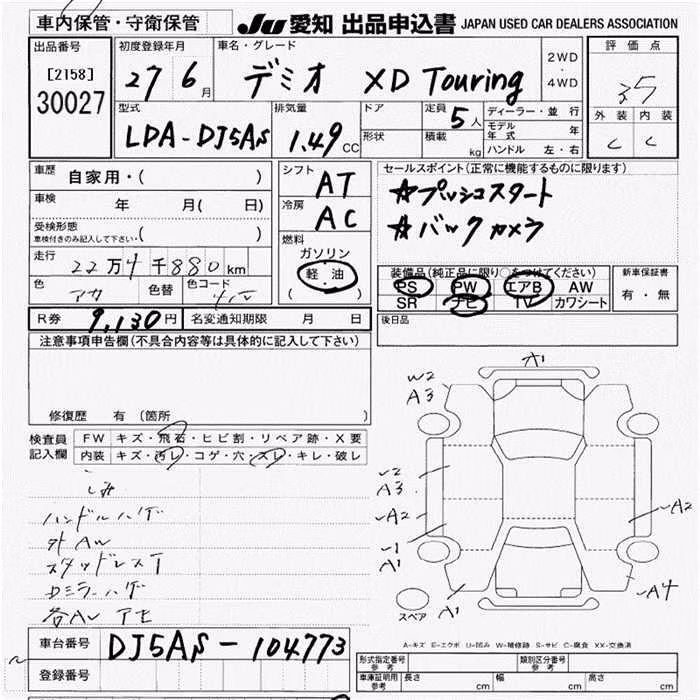 車内保管・守衛保管
JU 愛知 出品申込書 JAPAN USED CAR DEALERS ASSOCIATION
出品番号
[2158]
30027
初度登録年月
27 6月
車名・グレード
デミオ XD Touring
2WD
・
4WD
評価点
3.5
外装 内装
C C
型式
LDA-DJ5AS
排気量
1.49 CC
ドア
形状
定員
5人
積載
kg
ディーラー・並行
モデル年式 年
ハンドル 左・右
車歴
自家用・( )
車検
年 月( 日)
受検形態
車検付きのみ記入して下さい・( )
走行
22万4千880km
色
アカ
色替
色コード
シフト
AT
冷房
AC
燃料
ガソリン
軽・油
( )
セールスポイント(正常に機能するものに限ります)
☆プッシュスタート
☆バックカメラ
装備品(純正品に限り○をつけてください)
PS PW エアB AW
SR ナビ TV カワシート
新車保証書
有・無
R券 9,130円
名変通知期限 月 日
後日品
注意事項申告欄(不具合内容等は具体的に記入して下さい)
修復歴 有(箇所 )
検査員記入欄
FW キズ・飛石・ヒビ割・リペア跡・X要
内装 キズ・汚レ・コゲ・穴・スレ・キレ・破レ
ハンドルハゲ
外AW
スタッドレスT
Dミラーハゲ
A1
W2
A3
A3
A2
A1
A1
A2
A4
スペア
A-キズ E-エクボ U-凹み W-補修跡 S-サビ C-腐食 XX-交換済
車台番号
DJ5AS-104773
登録番号
形式指定番号
参考
類別区分番号
参考
車庫証明用
参考
長さ cm 幅 cm 高さ cm